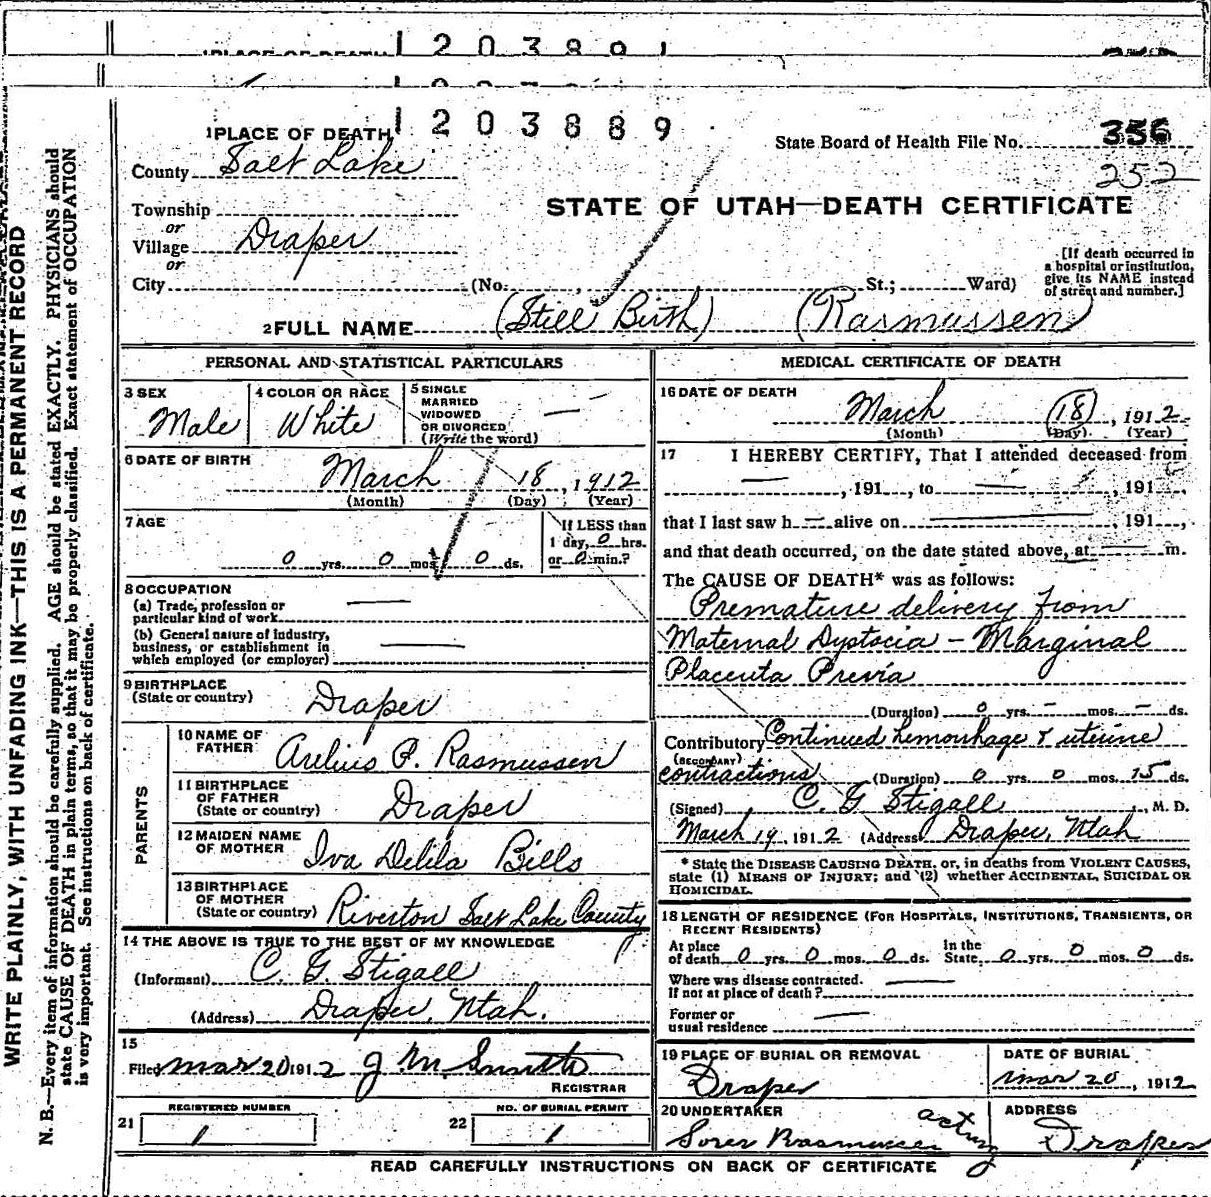 1 PLACE OF DEATH 1203891
1203889
1 PLACE OF DEATH
State Board of Health File No. 356
252
County Salt Lake
Township
or
Village Draper
or
City (No. , St.; Ward)
STATE OF UTAH—DEATH CERTIFICATE
[If death occurred in
a hospital or institution,
give its NAME instead
of street and number.]
2 FULL NAME (Still Birth) (Rasmussen)
PERSONAL AND STATISTICAL PARTICULARS
3 SEX
Male
4 COLOR OR RACE
White
5 SINGLE
MARRIED
WIDOWED
OR DIVORCED
(Write the word) —
6 DATE OF BIRTH
March 18, 1912
(Month) (Day) (Year)
7 AGE
0 yrs. 0 mos. 0 ds.
If LESS than
1 day, 0 hrs.
or 0 min.?
8 OCCUPATION
(a) Trade, profession or
particular kind of work —
(b) General nature of industry,
business, or establishment in
which employed (or employer) —
9 BIRTHPLACE
(State or country) Draper
PARENTS
10 NAME OF
FATHER Arelius P. Rasmussen
11 BIRTHPLACE
OF FATHER
(State or country) Draper
12 MAIDEN NAME
OF MOTHER Iva Delila Bills
13 BIRTHPLACE
OF MOTHER
(State or country) Riverton Salt Lake County
14 THE ABOVE IS TRUE TO THE BEST OF MY KNOWLEDGE
(Informant) C. G. Stigall
(Address) Draper, Utah.
15
Filed Mar 20 1912 J M Smith
REGISTRAR
REGISTERED NUMBER
21 1
NO. OF BURIAL PERMIT
22 1
MEDICAL CERTIFICATE OF DEATH
16 DATE OF DEATH
March 18, 1912
(Month) (Day) (Year)
17 I HEREBY CERTIFY, That I attended deceased from
— , 191 , to — , 191 ,
that I last saw h — alive on — , 191 ,
and that death occurred, on the date stated above, at — m.
The CAUSE OF DEATH* was as follows:
Premature delivery from
Maternal Dystocia – Marginal
Placenta Previa
(Duration) 0 yrs. – mos. – ds.
Contributory Continued hemorhage & uterine
(SECONDARY)
contractions (Duration) 0 yrs. 0 mos. 15 ds.
(Signed) C. G Stigall, M. D.
March 19, 1912 (Address) Draper, Utah
* State the DISEASE CAUSING DEATH, or, in deaths from VIOLENT CAUSES,
state (1) MEANS OF INJURY; and (2) whether ACCIDENTAL, SUICIDAL OR
HOMICIDAL.
18 LENGTH OF RESIDENCE (FOR HOSPITALS, INSTITUTIONS, TRANSIENTS, OR
RECENT RESIDENTS)
At place
of death 0 yrs. 0 mos. 0 ds.
In the
State 0 yrs. 0 mos. 0 ds.
Where was disease contracted.
If not at place of death? —
Former or
usual residence —
19 PLACE OF BURIAL OR REMOVAL
Draper
DATE OF BURIAL
Mar 20, 1912
20 UNDERTAKER
Soren Rasmussen acting
ADDRESS
Draper
READ CAREFULLY INSTRUCTIONS ON BACK OF CERTIFICATE
WRITE PLAINLY, WITH UNFADING INK—THIS IS A PERMANENT RECORD
N. B.—Every item of information should be carefully supplied. AGE should be stated EXACTLY. PHYSICIANS should
state CAUSE OF DEATH in plain terms, so that it may be properly classified. Exact statement of OCCUPATION
is very important. See instructions on back of certificate.